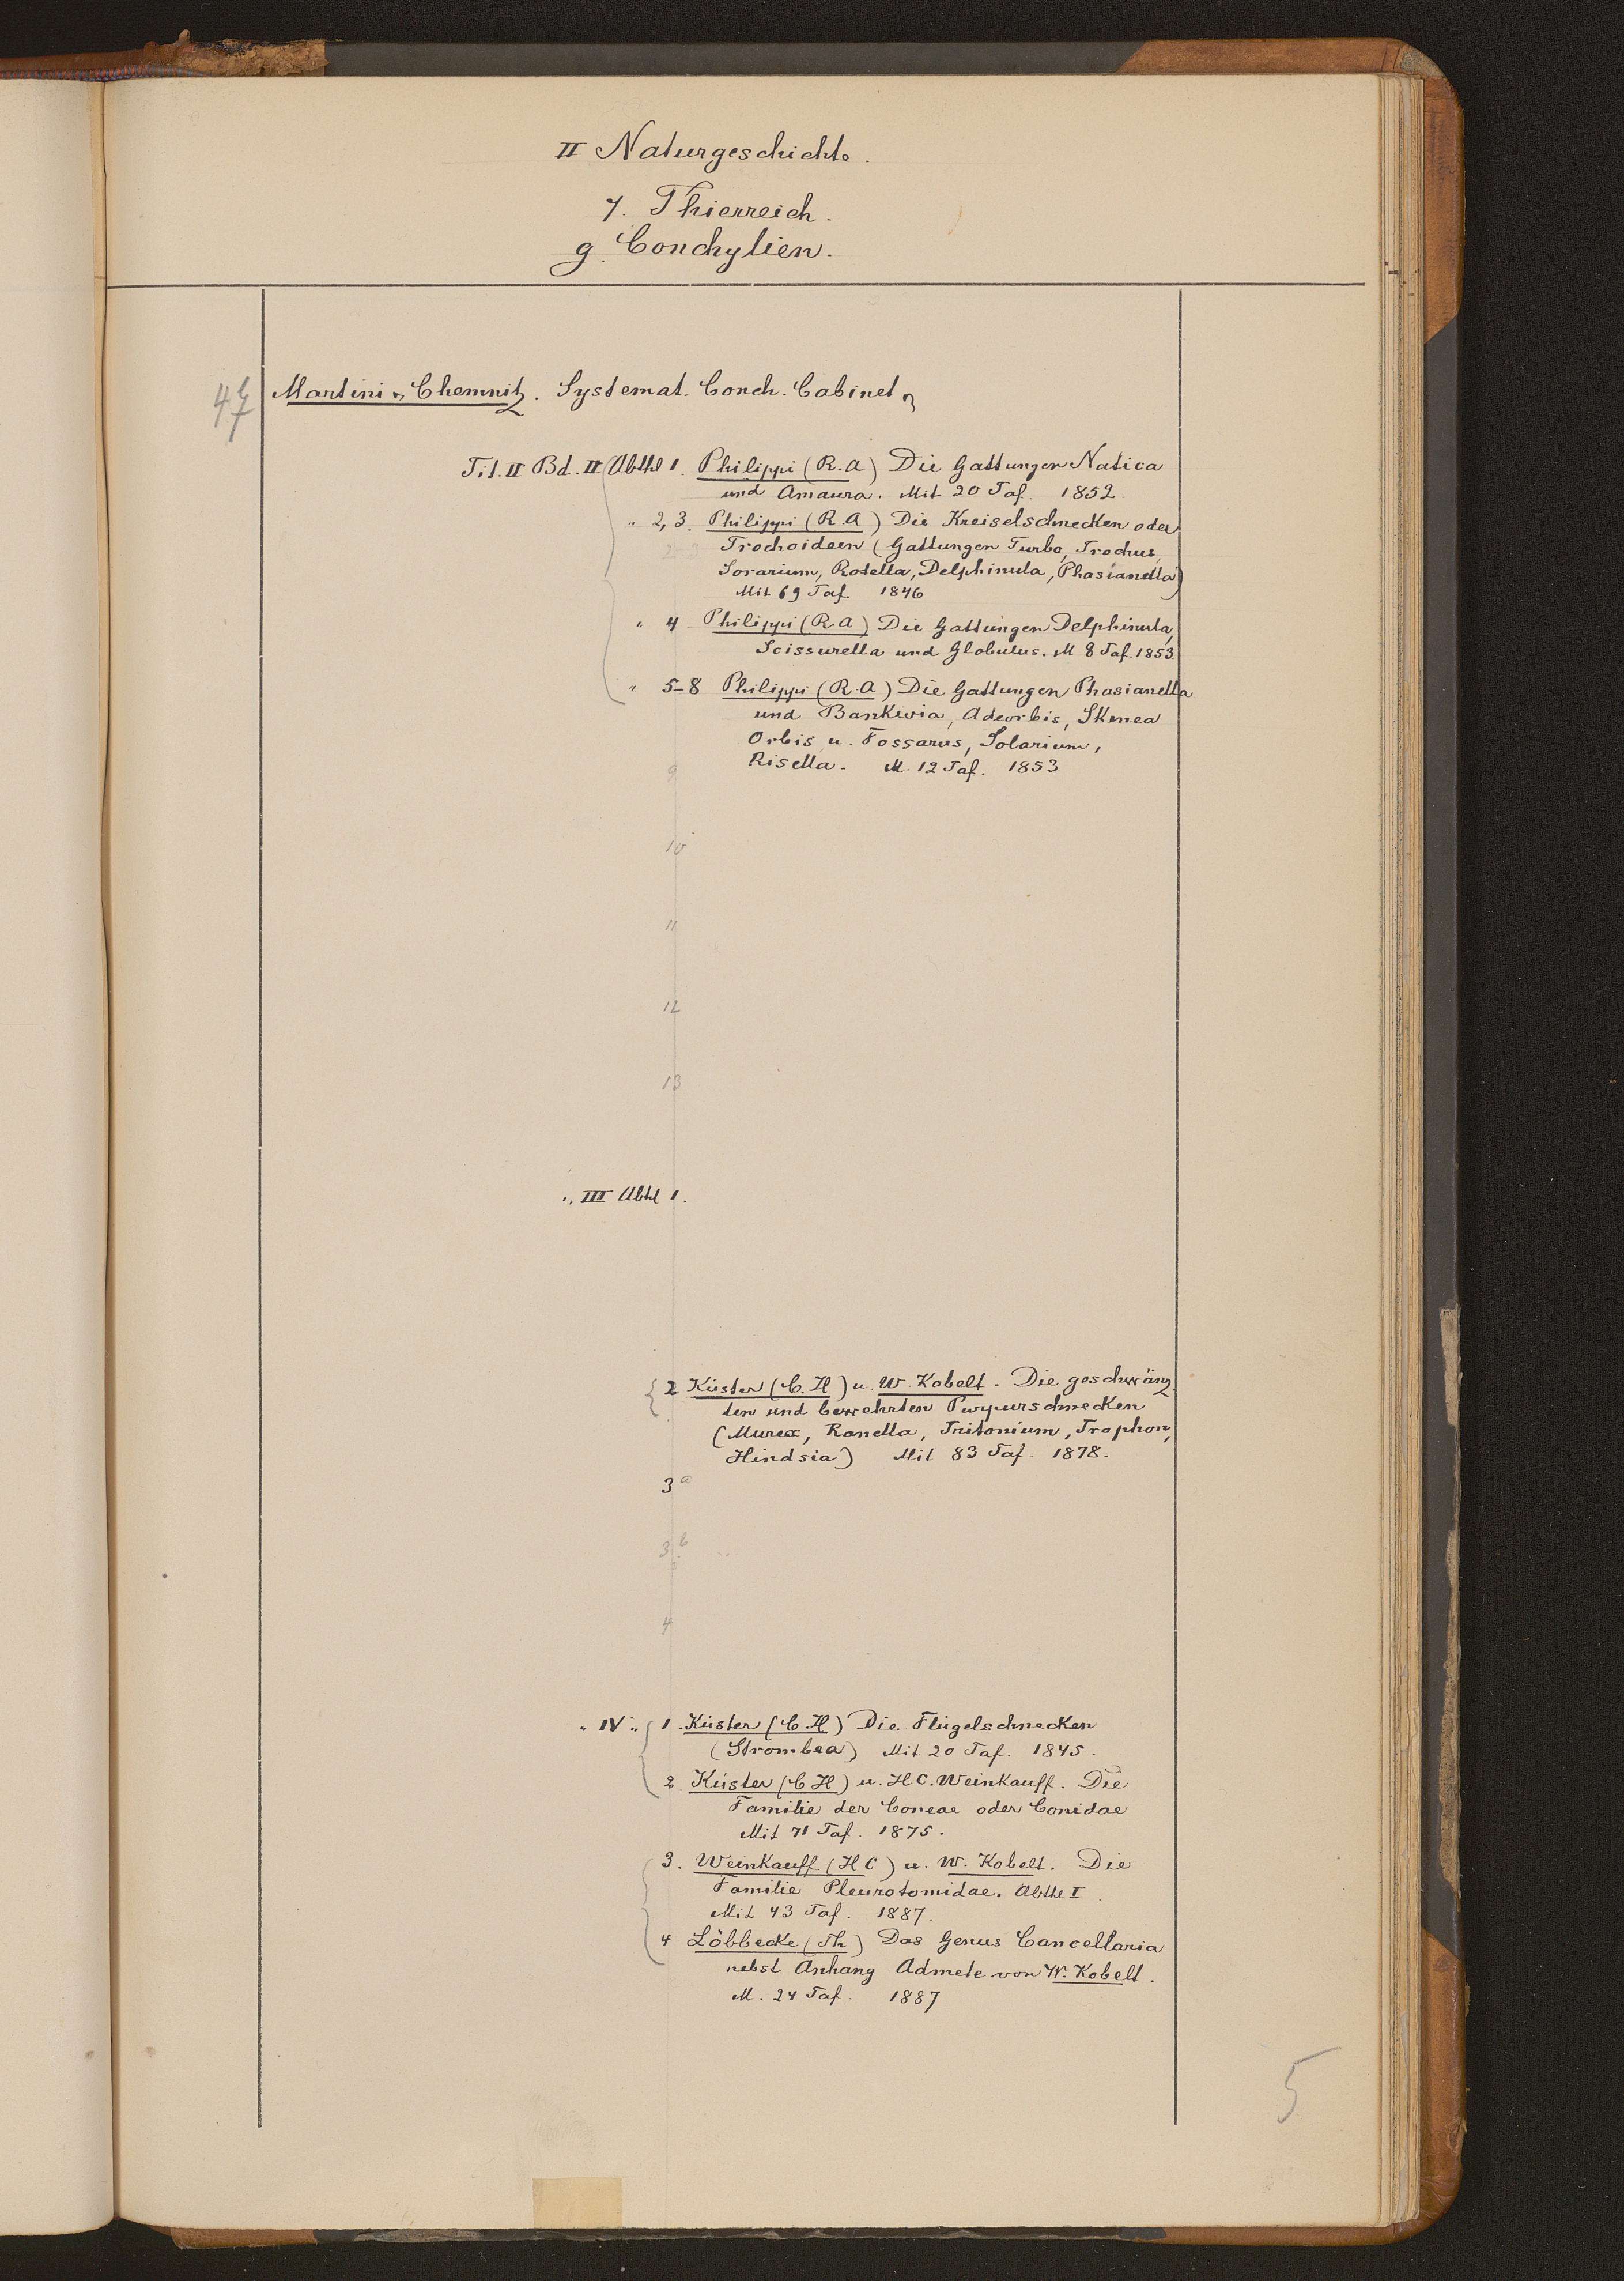 II Naturgeschichte.
7. Thierreich.
g. Conchylien.
47 Martini & Chemnitz. Systemat. Conch. Cabinet
Tit. II Bd. II Abthl 1. Philippi (R.A) Die Gattungen Natica
und Amaura. Mit 20 Taf. 1852.
" 2, 3. Philippi (R.A) Die Kreiselschnecken oder
Trochoideen (Gattungen Turbo, Trochus,
Sorarium, Rotella, Delphinula, Phasianella)
Mit 69 Taf. 1846
" 4 Philippi (R.A) Die Gattungen Delphinula,
Scissurella und Globulus. M 8 Taf. 1853.
" 5-8 Philippi (R.A) Die Gattungen Phasianella
und Bankivia, Adeorbis, Skenea
Orbis u. Fossarus, Solarium,
Risella. M. 12 Taf. 1853
9
10
11
12
13
" III Abtl 1.
2 Küster (C.H) u. W. Kobelt. Die geschwänz-
ten und bewehrten Purpurschnecken
(Murex, Ranella, Tritonium, Trophon,
Hindsia) Mit 83 Taf. 1878.
3 a
3 b
4
" IV " 1. Küster (C H) Die Flügelschnecken
(Strombea) Mit 20 Taf. 1845.
2. Küster (C H) u. H C. Weinkauff. Die
Familie der Coneae oder Conidae
Mit 71 Taf. 1875.
3. Weinkauff (H C) u. W. Kobelt. Die
Familie Pleurotomidae. Abthe I.
Mit 43 Taf. 1887.
4 Löbbecke (Th) Das Genus Cancellaria
nebst Anhang Admete von W. Kobelt.
M. 24 Taf. 1887
5